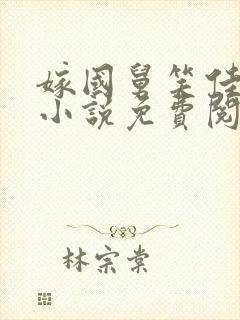 嫁國舅笑佳
小說免費閱
林宗棠